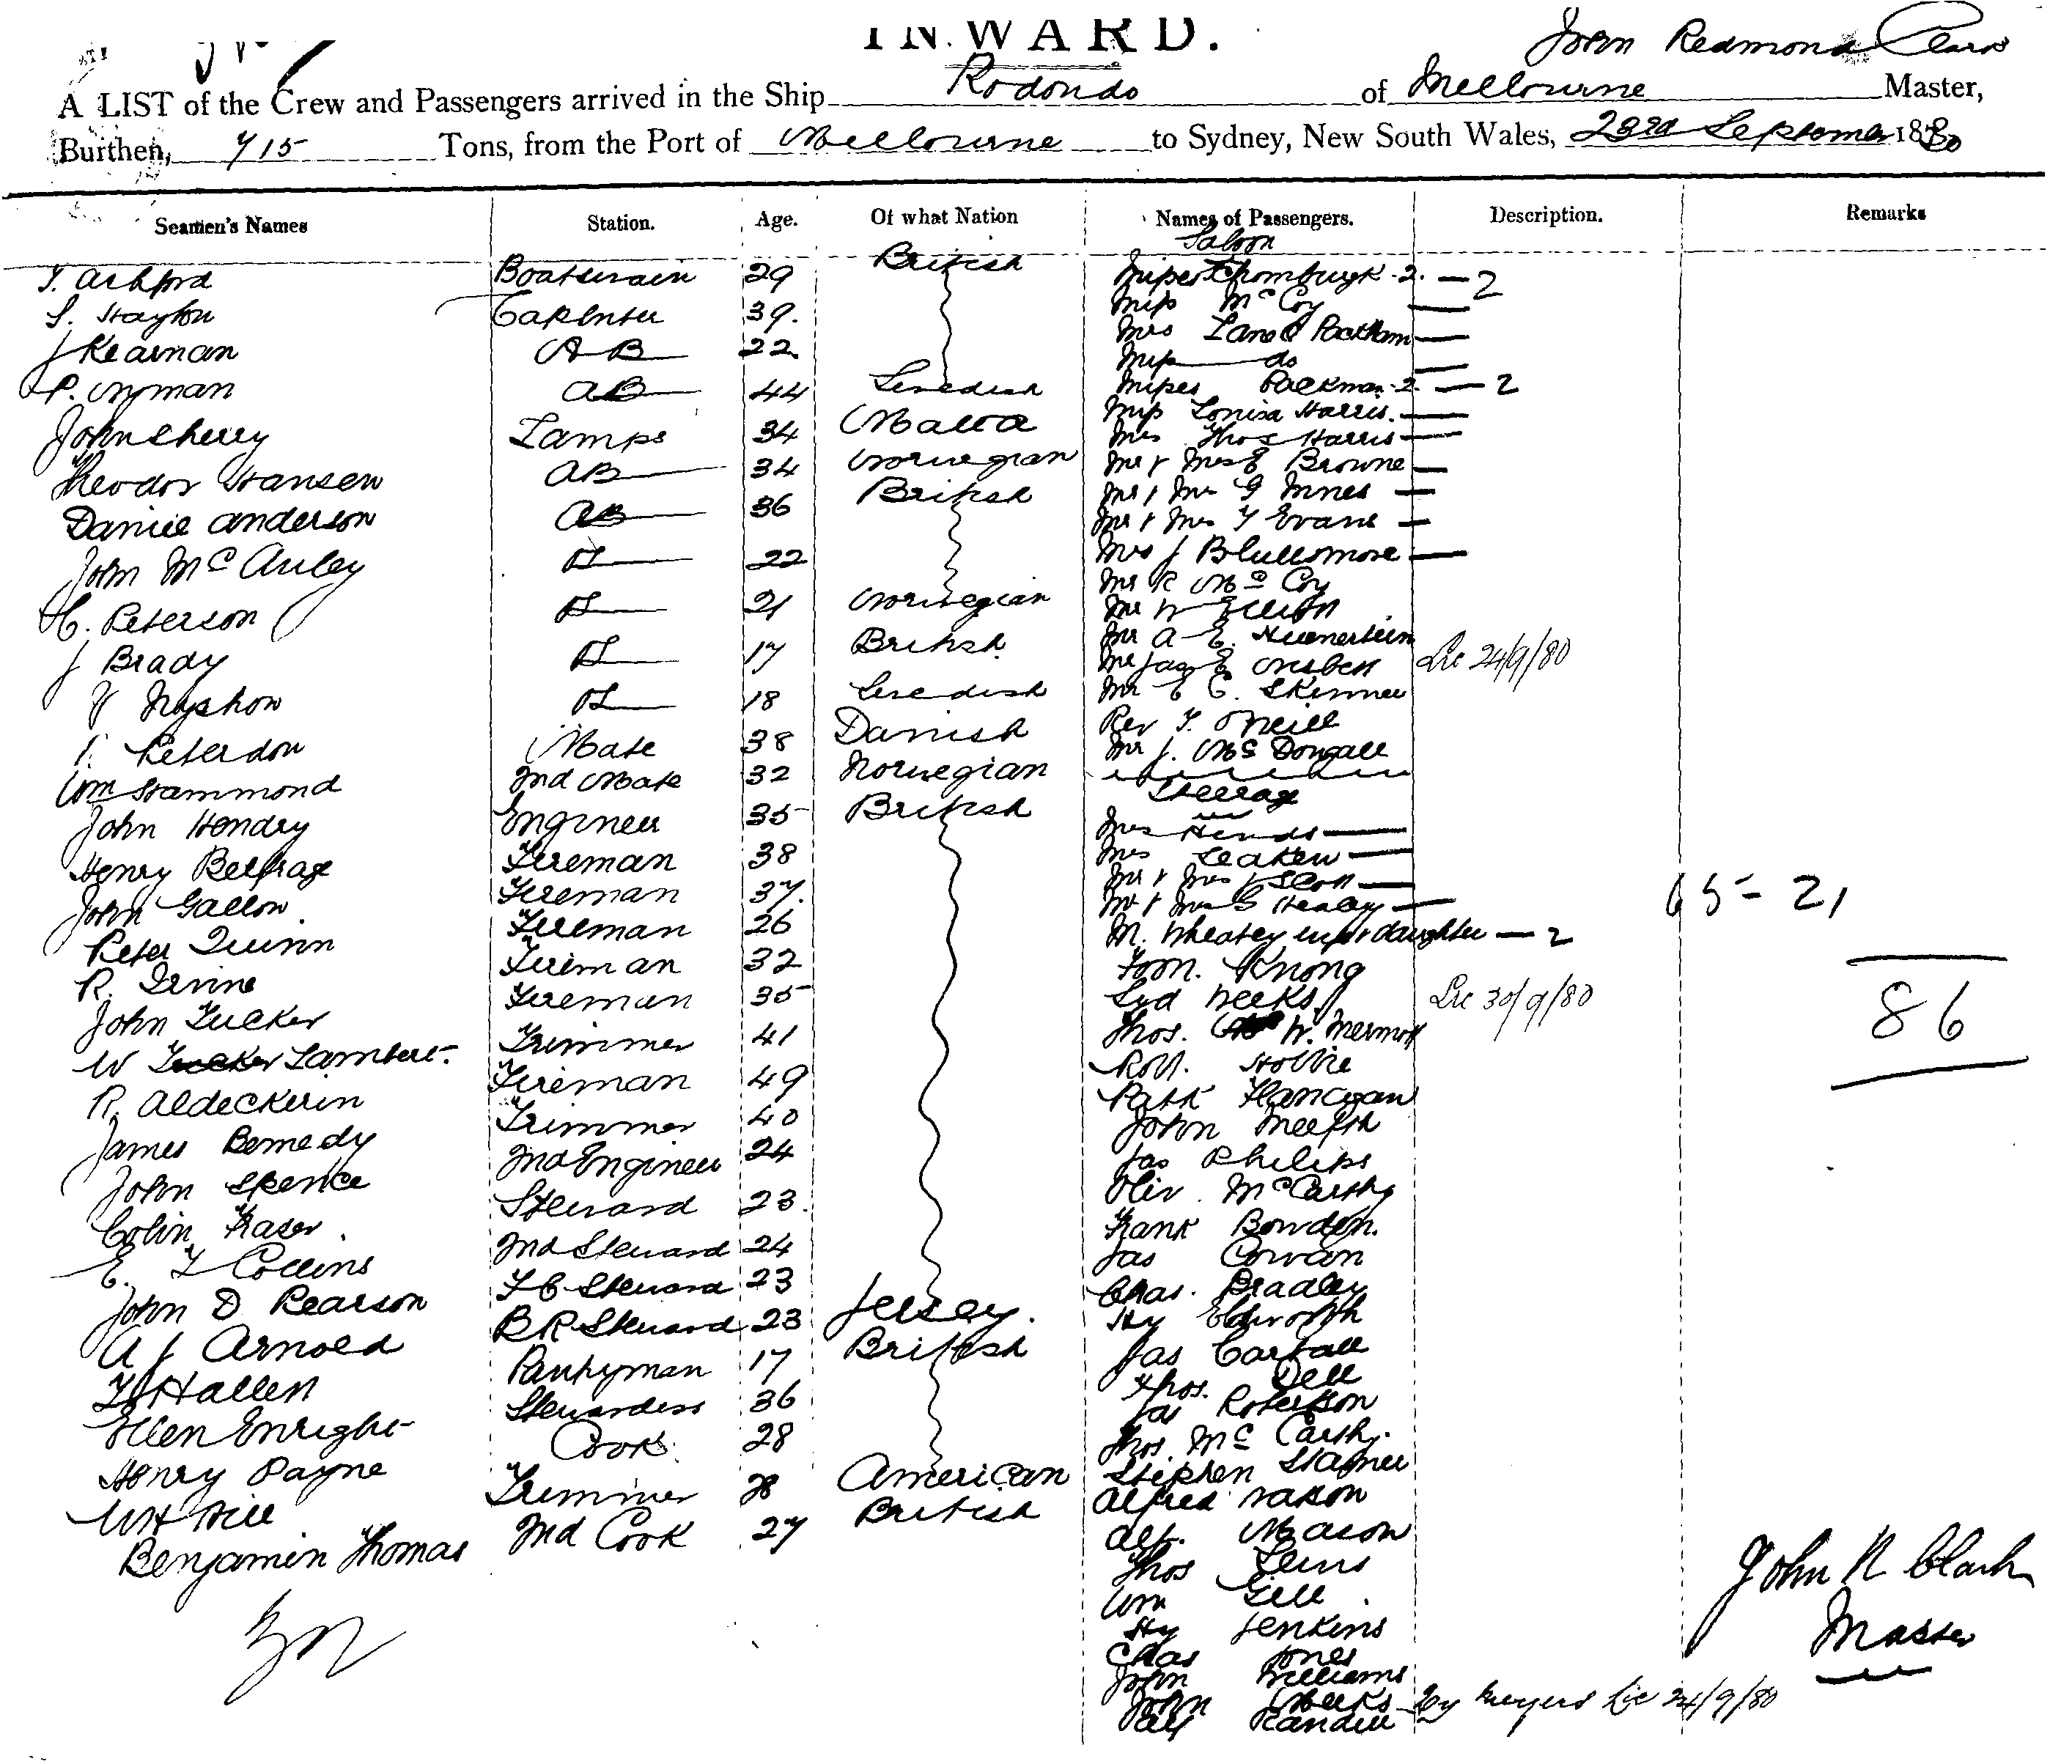 INWARD.
John Redmond Clark
A LIST of the Crew and Passengers arrived in the Ship Rodondo of Melbourne Master,
Burthen, 715 Tons, from the Port of Melbourne to Sydney, New South Wales, 23rd September 1880
Seamen's Names Station. Age. Of what Nation Names of Passengers. Description. Remarks
Saloon
T. Ashford Boatswain 29 British Misses Thomburgk 2. — 2
S. Hayton Carpenter 39. Miss McCoy —
J Kearnan AB 22 Mrs Lane Packham —
Miss do —
P. Nyman AB 44 Swedish Misses Packman 2 — 2
John Cherry Lamps 34 Malta Miss Louisa Harris. —
Mrs Thos Harris —
Theodor Hansen AB 34 Norwegian Mr & Mrs E Browne —
Daniel Anderson AB 36 British Mr & Mrs G Innes —
Mr & Mrs T Evans —
John McAuley 22 Mrs J B Cullsmore —
Mr R McCoy
H. Peterson 21 Norwegian Mr W
J Brady 17 British Mr A E.
Mr Jas E Nesbett Lic 24/9/80
18 Swedish Mr E C. Skinner
Peterson Mate 38 Danish Rev T. O'Neill
Mr J. McDougall
Wm Hammond 2nd Mate 32 Norwegian
Steerage
John Hendry Engineer 35 British Mrs Hinds —
Henry Belfrage Fireman 38 Mrs Leaken —
Mr & Mrs J Scott —
John Gallow Fireman 37. Mr & Mrs G Healey — 65 - 21
Peter Quinn Fireman 26 M. Wheatey wife & daughter — 2
R. Irvine Fireman 32 Tom. Knong
John Tucker Fireman 35 Syd Weeks Lic 30/9/80 86
W Tucker Lambert. Trimmer 41 Thos. W. Mermott
R. Aldeckerin Fireman 49 Robt. Hobbie
Patk Flanagan
James Bemedy Trimmer 40 John
John Spence 2nd Engineer 24 Jas Philips
Colin Fraser. Steward 23. Oliv. McCarthy
Frank Bowden.
E. T Collins 2nd Steward 24 Jas Corvan
John D Pearson F C Steward 23 Chas. Bradley
A J Arnold B R Steward 23 Jersey. Hy Elsworth
T Hallen Pantryman 17 British Jas Carball
Thos. Dell
Ellen Enright Stewardess 36 Jas Roberson
Henry Payne Cook 28 Thos. McCarthy.
W H Hill Trimmer 28 American Stephen Stapner
Alfred Nason
Benjamin Thomas 2nd Cook 27 British Alf. Mason
Thos Lewis
Wm Gill
Hy Jenkins
Chas Jones
John Williams
John Weeks Hy Meyers Lic 24/9/80
Alf Randell
John R Clark
Master